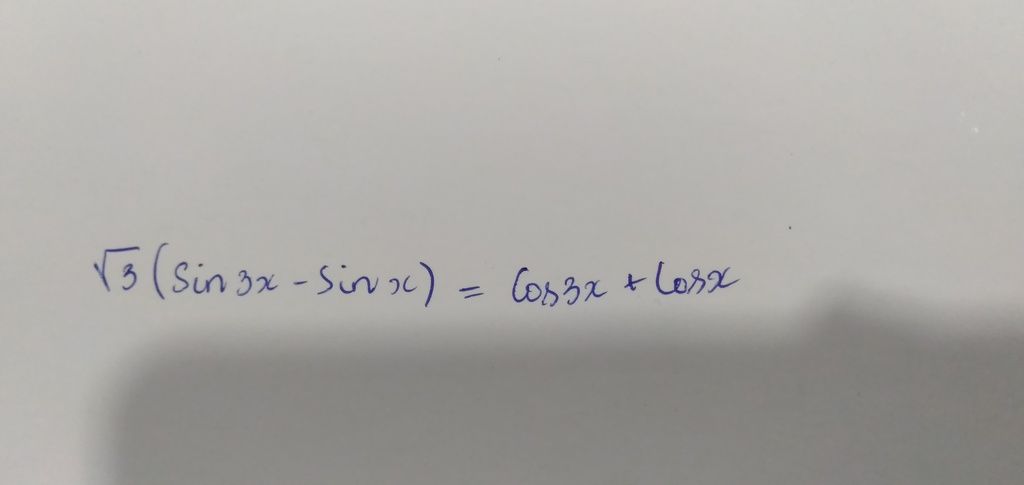 √3 (Sin 3x - Sin x) = Cos 3x + Cos x